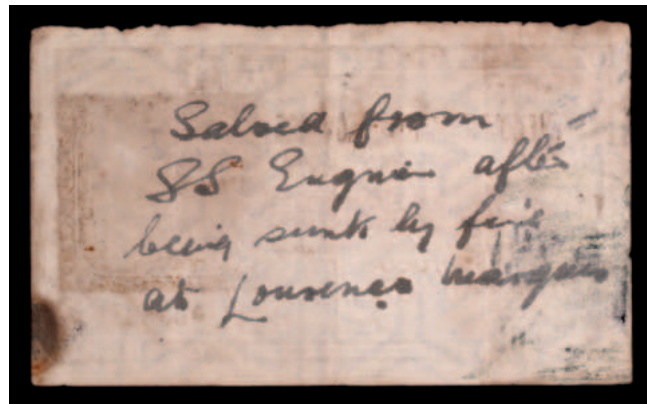 Salved from
SS Enquire after
being sunk by fire
at Lourenço Marques